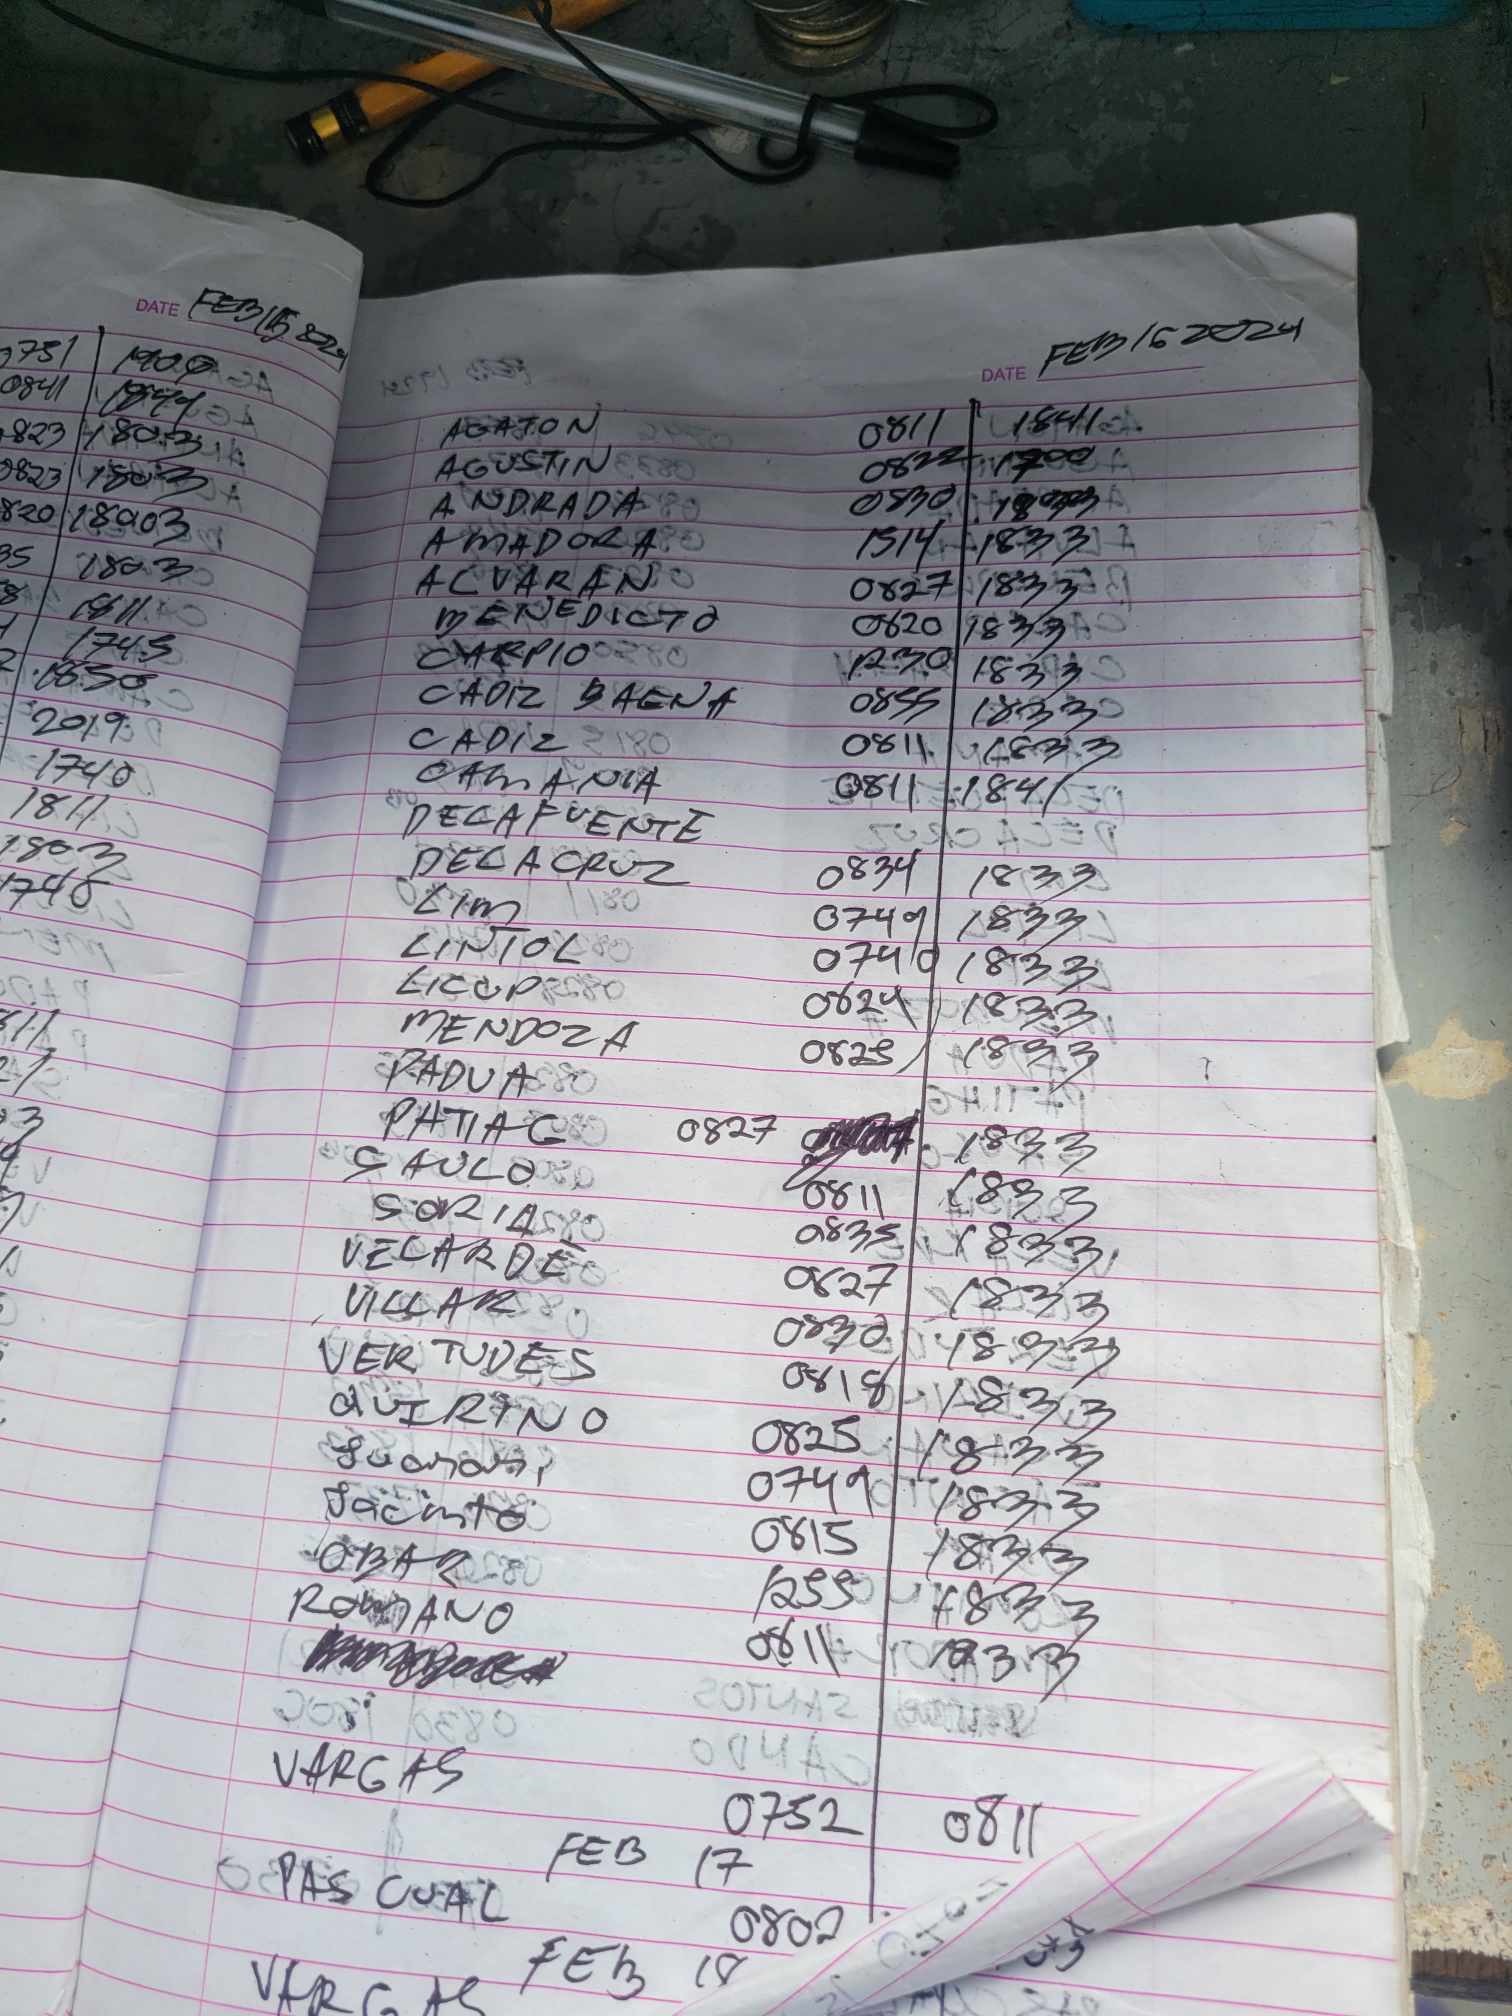 DATE FEB 15 2024
0751 1900
0841 1844
0823 1803
0823 1803
0820 18003
35 1803
1811
1745
1850
2019
1740
1811
1803
1740
DATE FEB 16 2024
AGATON 0811 1841
AGUSTIN 0822 1700
ANDRADA 0830 1833
AMADORA 1514 1833
ALVARAN 0827 1833
BENEDICTO 0820 1833
CARPIO 1230 1833
CADIZ BAENA 0855 1833
CADIZ 0811 1833
CAMANIA 0811 1841
DELAFUENTE
DELACRUZ 0834 1833
LIM 0749 1833
LINTOL 0740 1833
LICUP 0824 1833
MENDOZA 0825 1833
PADUA
PATIAG 0827 1833
SAULO 0811 1833
SORIA 0835 1833
VELARDE 0827 1833
VILLAR 0830 1833
VERTUDES 0818 1833
QUIRINO 0825 1833
0749 1833
Jacinto 0815 1833
OBAR 1255 1833
ROMANO 0811 1833
VARGAS 0752 0811
FEB 17
PASCUAL 0802
FEB 18
VARGAS